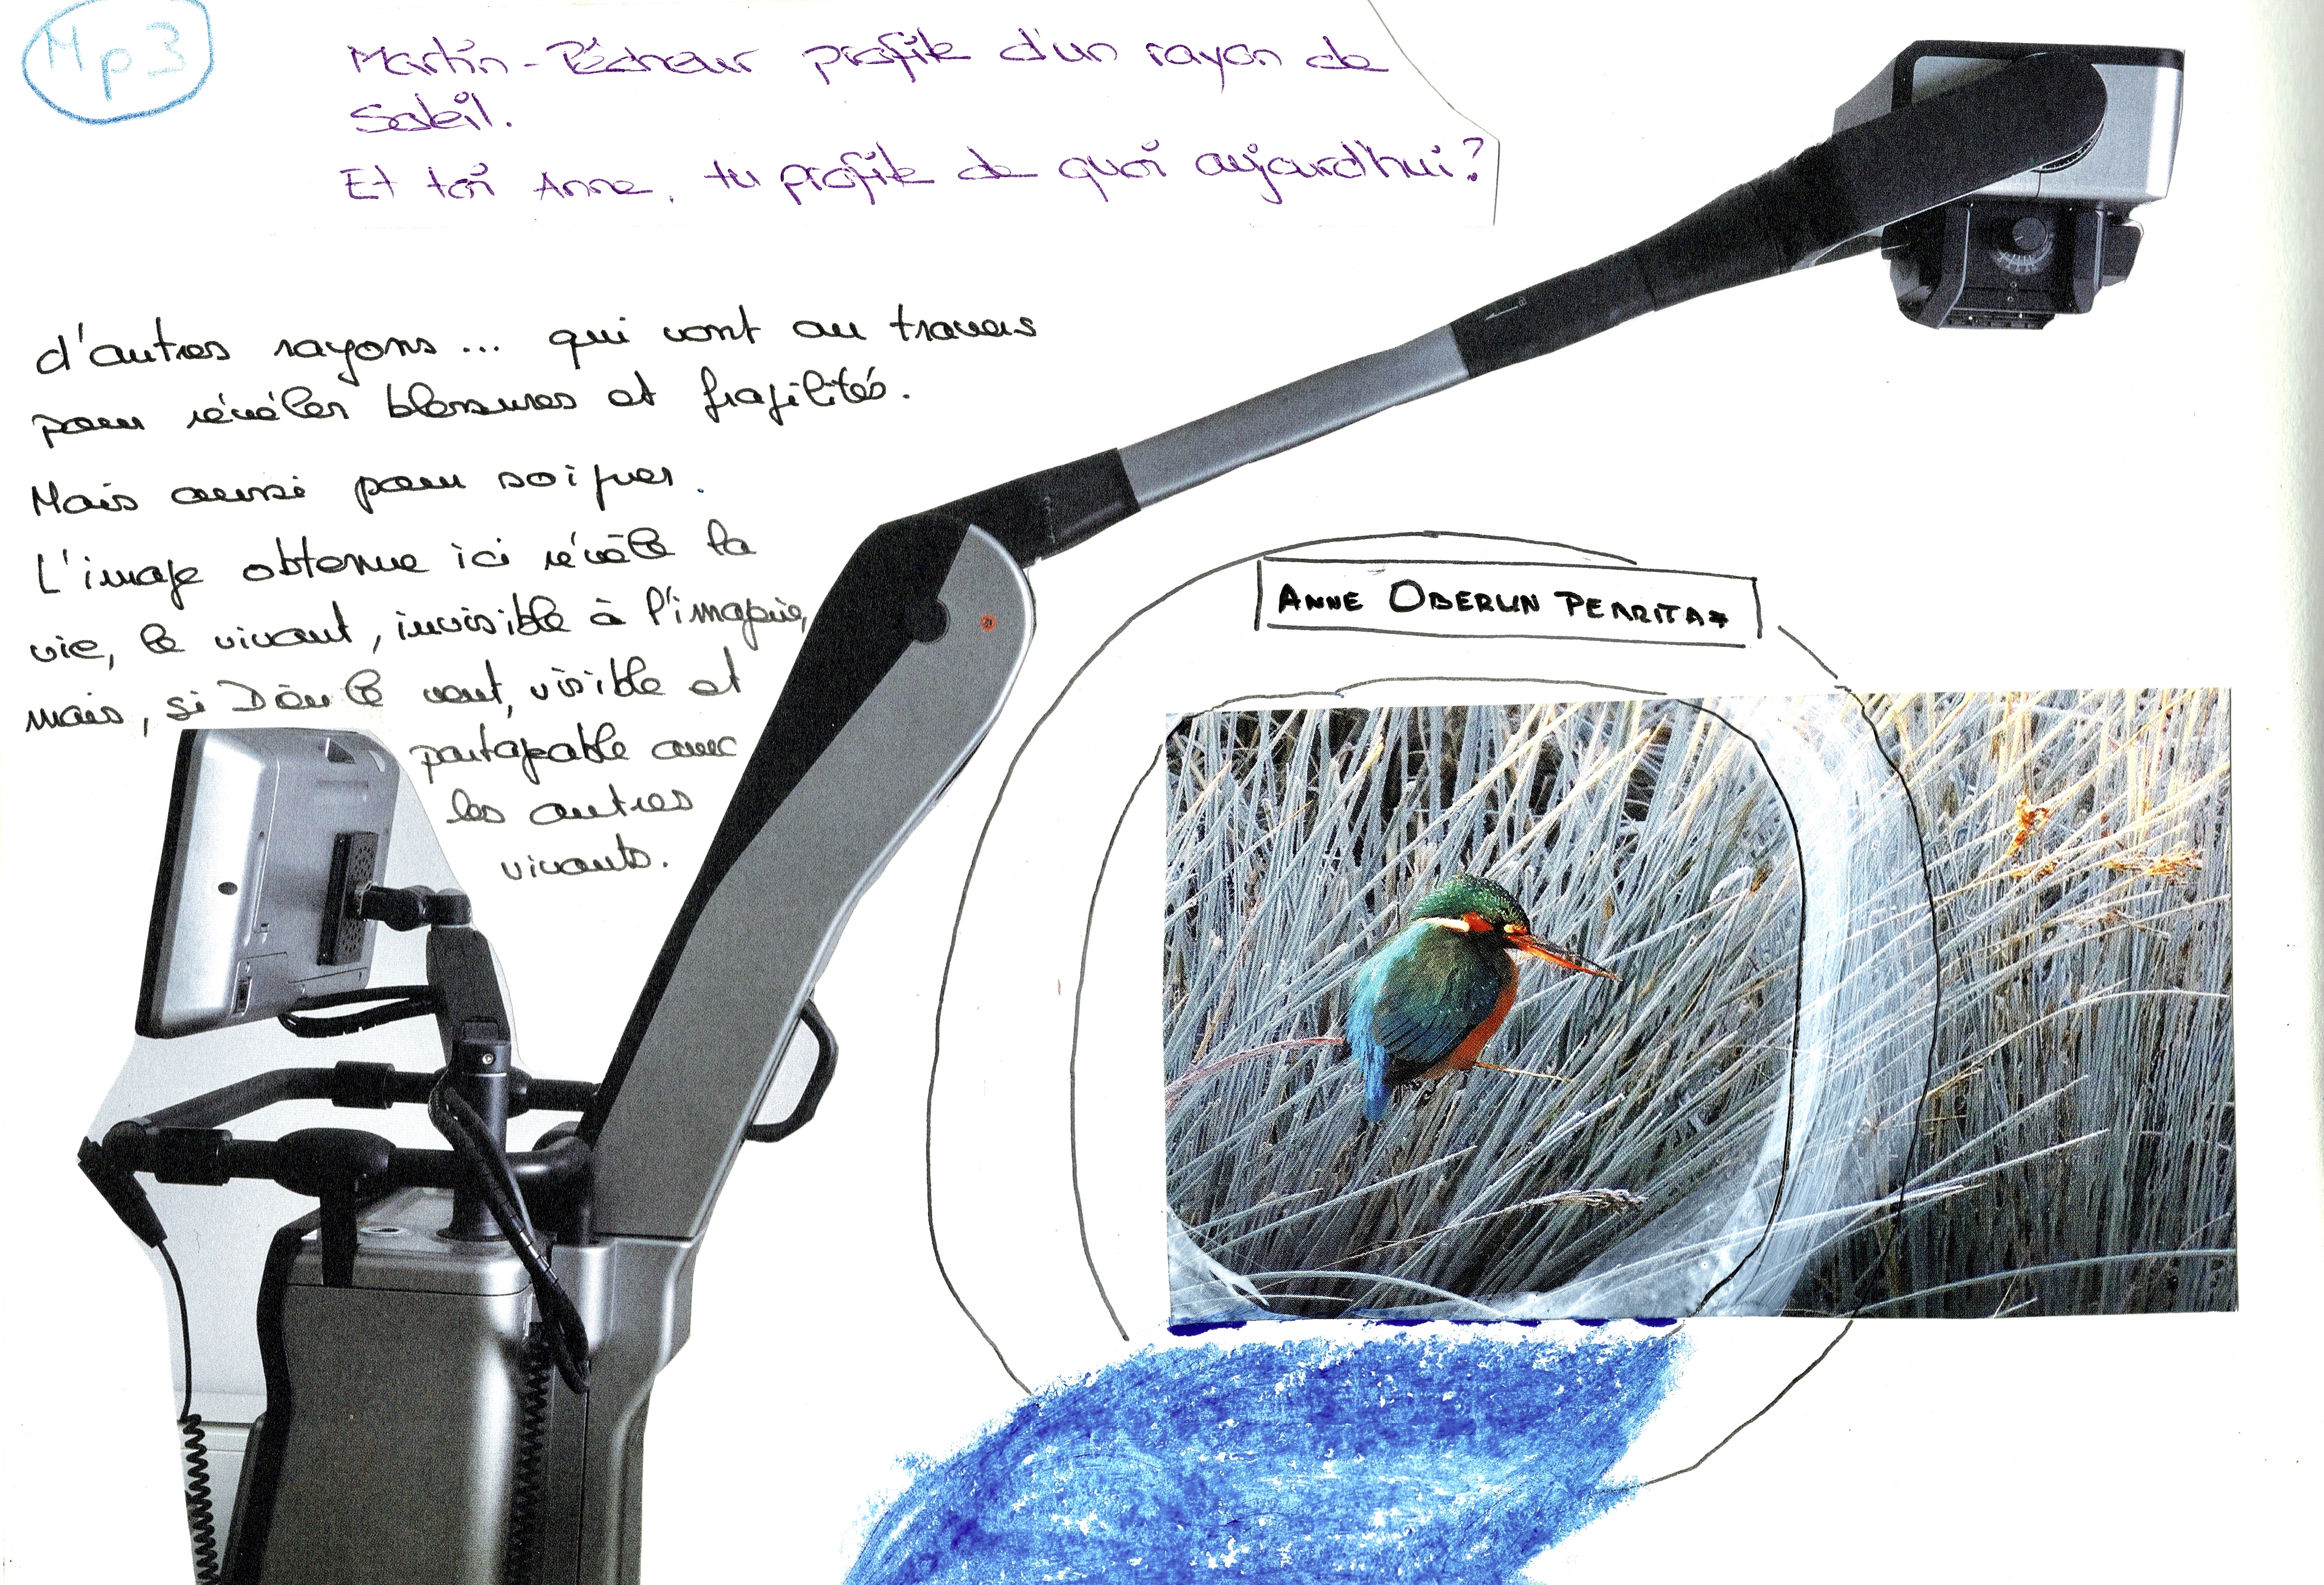 Mp3
Martin-Pêcheur profite d'un rayon de
Soleil.
Et toi Anne, tu profite de quoi aujourd'hui?
d'autres rayons... qui vont au travers
pour révéler blessures et fragilités.
Mais aussi pour soigner.
L'image obtenue ici révèle la
vie, le vivant, invisible à l'imagerie,
mais, si Dieu le veut, visible et
partageable avec
les autres
vivants.
ANNE OBERLIN PERRITAZ